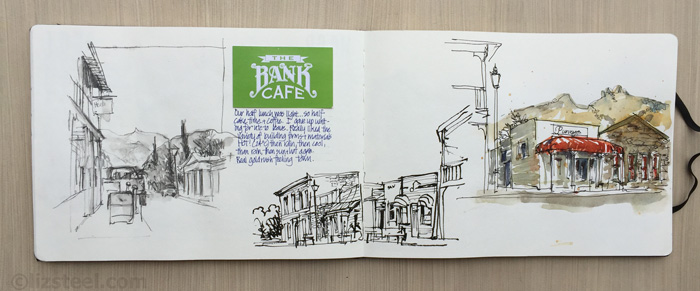 THE
BANK
CAFE
Our half lunch was light... so half
cake time + coffee. I gave up wait-
ing for it to leave. Really liked the
variety of building forms + materials
Hot (28°C) then rain, then cool,
then rain, then sun, hot again
Real goldrush feeling town.
©lizsteel.com